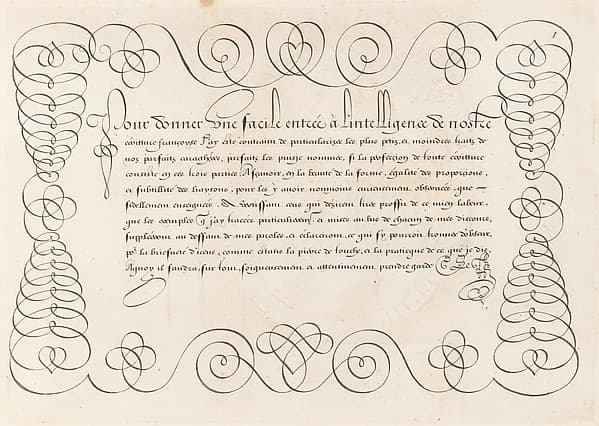 1
Pour donner une facile entrée à l'intelligence de nostre
ecriture françoyse J'ay esté contrainct de particularizer les plus petis, et moindres traits de
noz parfaits caracthères, parfaits les puis-je nommer, si la perfection de toute ecriture
consiste en ces trois parties. Asçavoir, en la beauté de la forme, égalité des proporcions,
et subtilité des liaysons, pour les y avoir nommoins curieusement observées que
fidellement enseignées. Avertissant ceux qui desirent tirer proffit de ce mien labeur,
que les exemples q j'ay tracées particulierement, et mises au bas de chacun de mes discours,
suppleeront au deffaut de mes paroles, et eclarciront ce qui s'y pourroit trouver d'obscur,
pr la briefveté d'iceux, comme estans la pierre de touche, et la pratique de ce que je die
Aquoy il faudra sur tout soigneusement et attentivement prendre garde